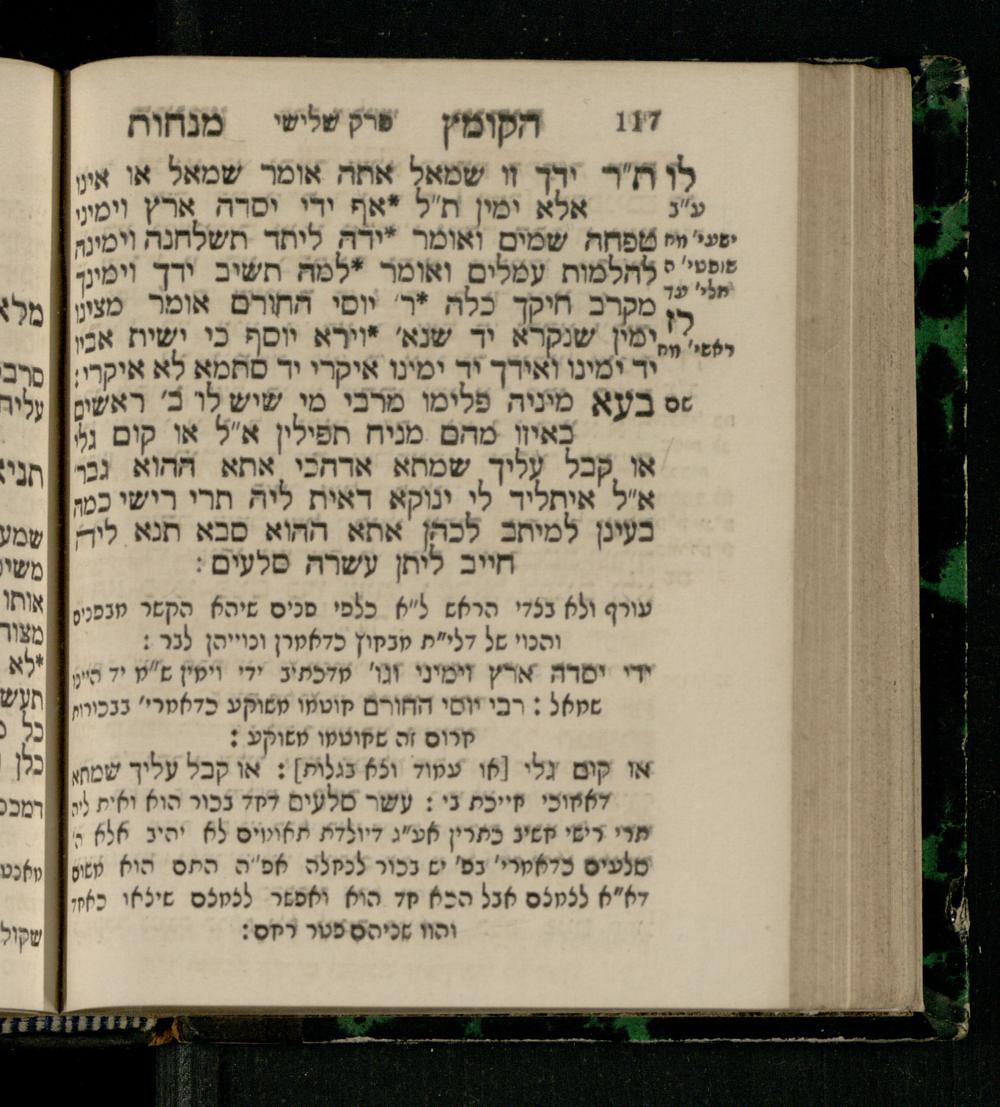 117 הקומץ פרק שלישי מנחות
לו ת"ר ידך זו שמאל אתה אומר שמאל או אינו
ע"ב אלא ימין ת"ל *אף ידי יסדה ארץ וימיני
ישעי' מח טפחה שמים ואומר *ידה ליתד תשלחנה וימינה
שופטי' ה להלמות עמלים ואומר *למה תשיב ידך וימינך
תלי' עד מקרב חיקך כלה *ר' יוסי החורם אומר מצינו
לז ימין שנקרא יד שנא' *וירא יוסף כי ישית אביו
ראשי' מח יד ימינו ואידך יד ימינו איקרי יד סתמא לא איקרי:
שם בעא מיניה פלימו מרבי מי שיש לו ב' ראשים
באיזו מהם מניח תפילין א"ל או קום גלי
או קבל עליך שמתא אדהכי אתא ההוא גבר'
א"ל איתליד לי ינוקא דאית ליה תרי רישי כמה
בעינן למיתב לכהן אתא ההוא סבא תנא ליה
חייב ליתן עשרה סלעים:
עורף ולא בצדי הראש ל"א כלפי פנים שיהא הקשר מבפנים
והנוי של דלי"ת מבחוץ כדאמרן ונוייהן לבר:
ידי יסדה ארץ וימיני וגו' מדכתיב ידי וימין ש"מ יד היינו
שמאל: רבי יוסי החורם חוטמו משוקע כדאמרי' בבכורות
חרום זה שחוטמו משוקע:
או קום גלי [או עמוד ולא בגלות]: או קבל עליך שמתא
דאחוכי חייכת בי: עשר סלעים דחד בכור הוא ואית ליה
תרי רישי חשיב כתרין אע"ג דיולדת תאומים לא יהיב אלא ה'
סלעים כדאמרי' בפ' יש בכור לנחלה אפ"ה התם הוא משום
דא"א לצמצם אבל הכא חד הוא ואפשר לצמצם שיצאו כאחד
והוו שניהם פטר רחם: